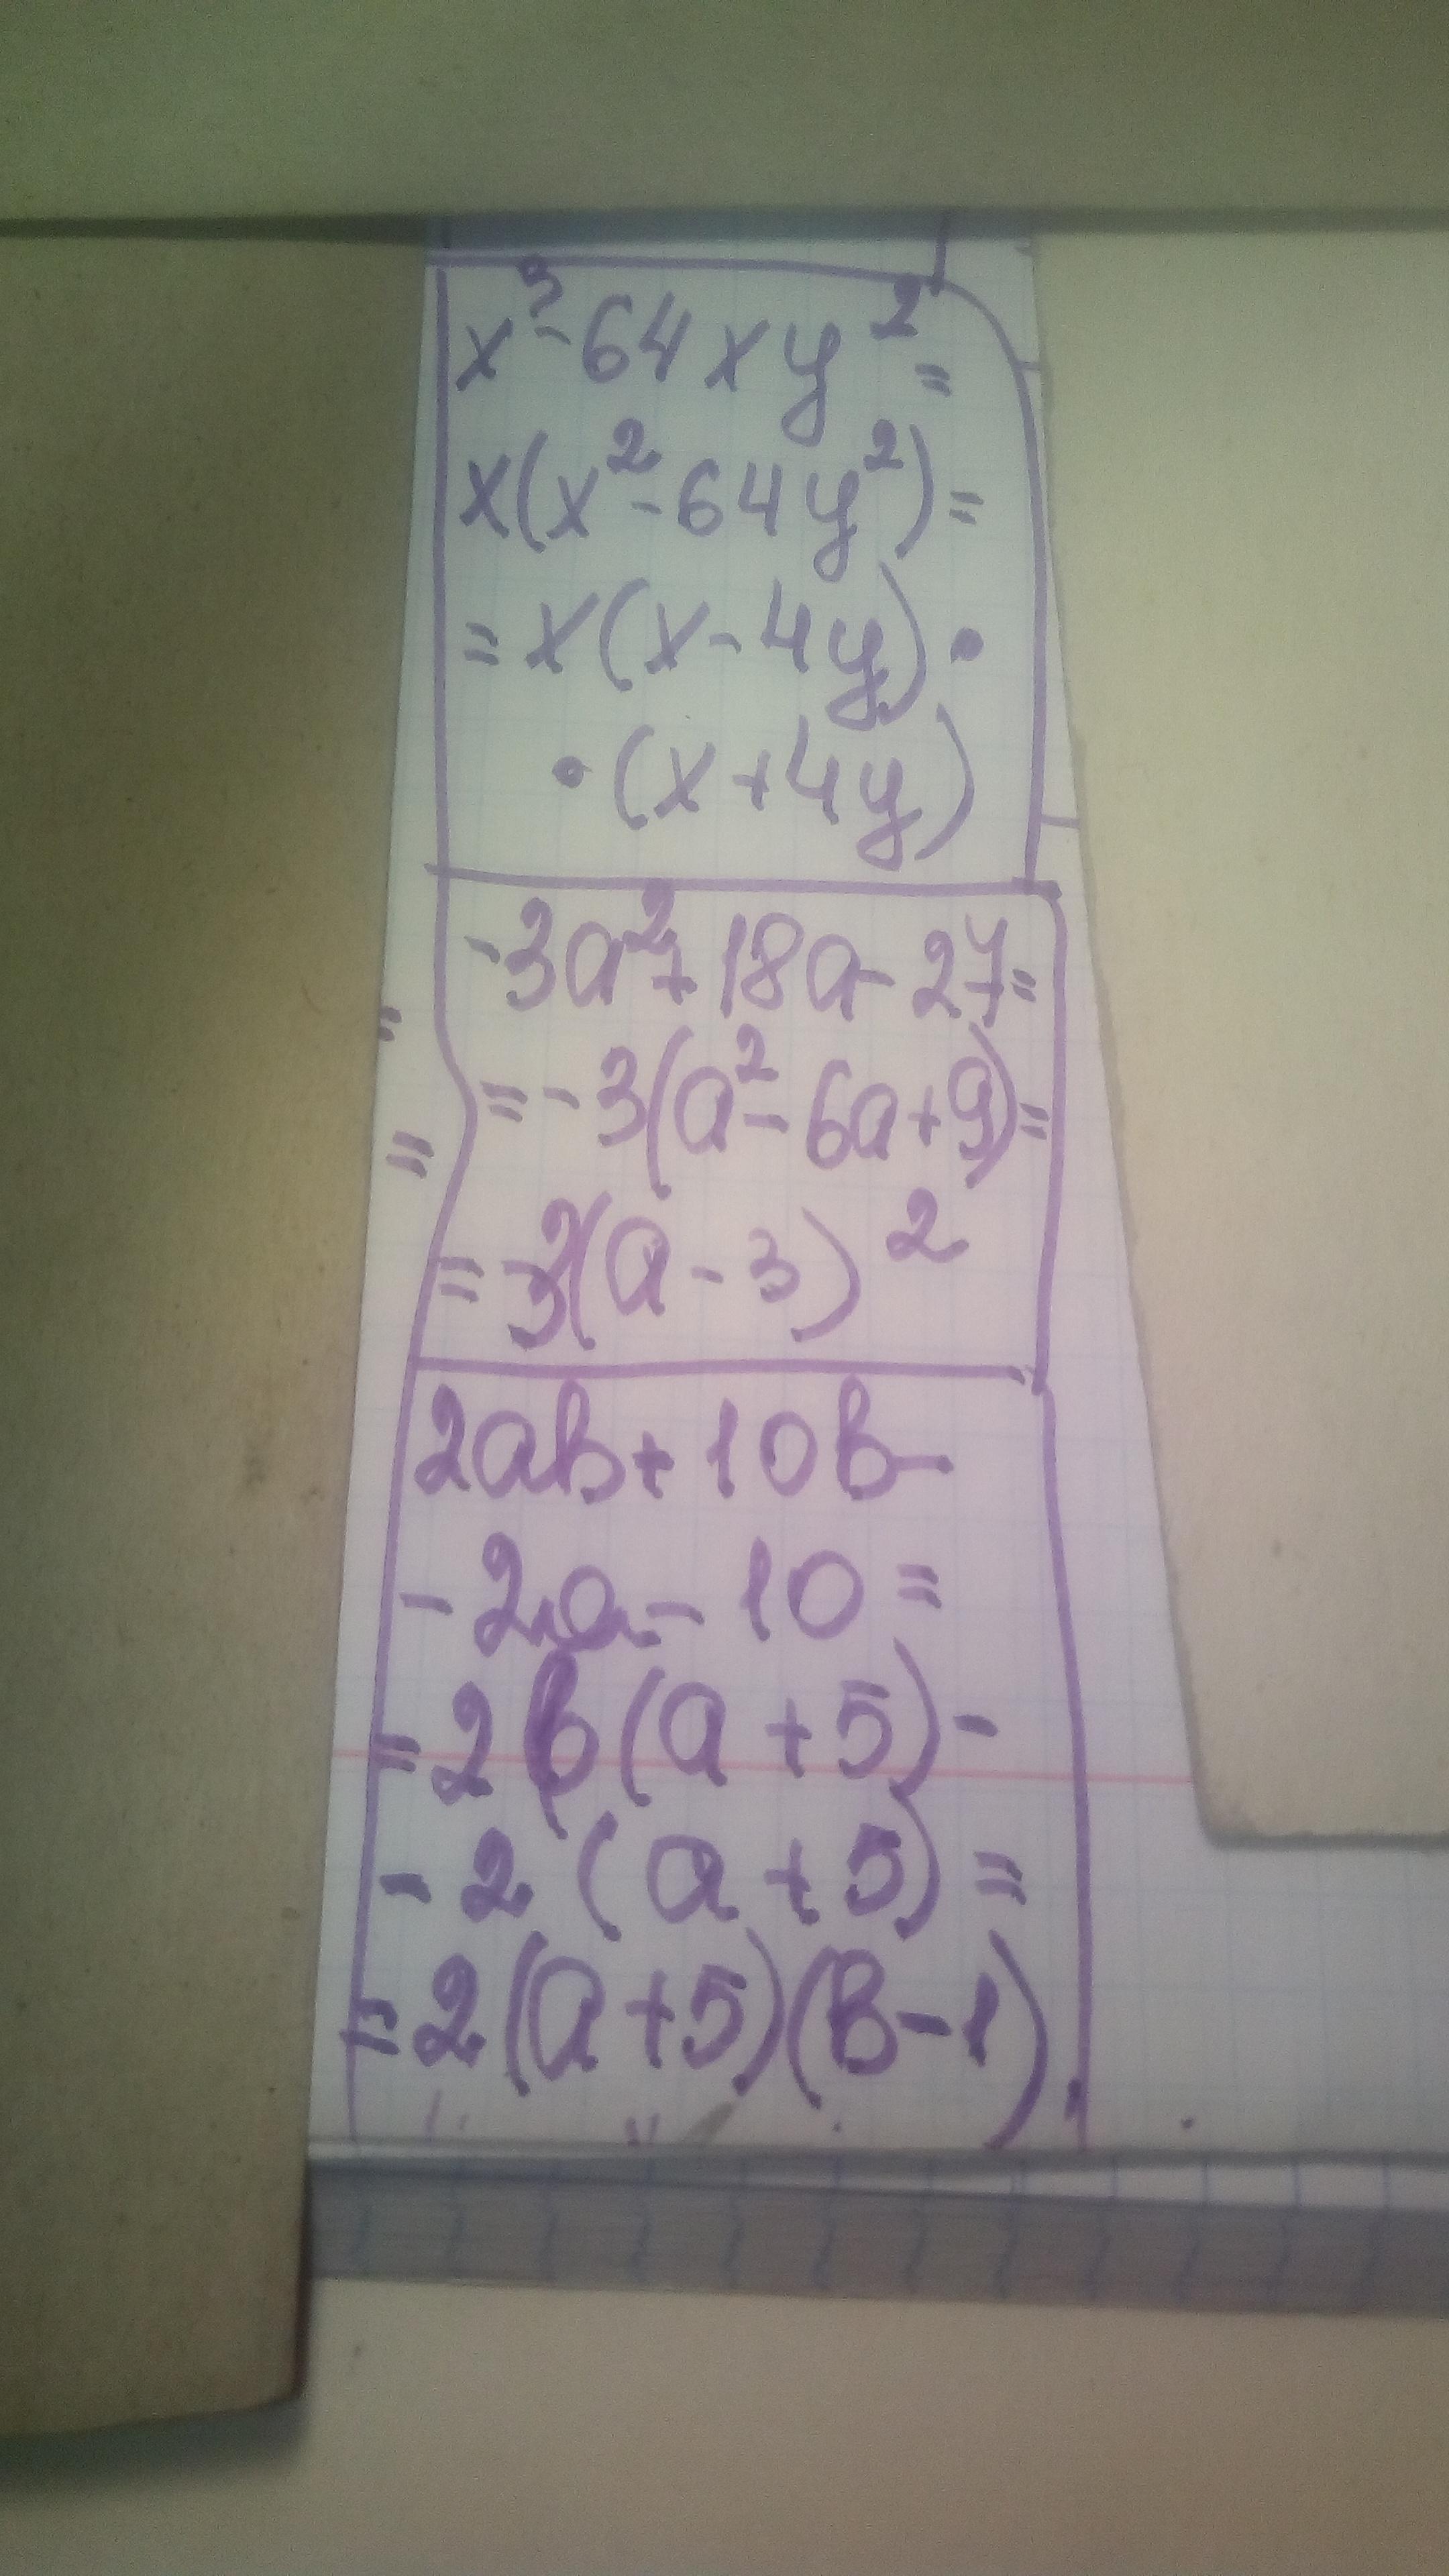 x³-64xy²=
x(x²-64y²)=
=x(x-4y)•
•(x+4y)
-3a²+18a-27=
=-3(a²-6a+9)=
=-3(a-3)²
2ab+10b-
-2a-10=
=2b(a+5)-
-2(a+5)=
=2(a+5)(b-1)